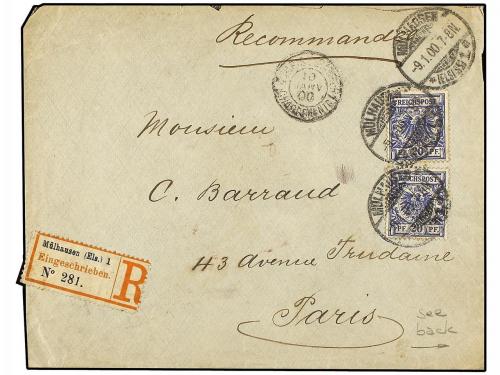 Recommandé
MÜLHAUSEN
-9.1.00.7-8N.
*(ELSASS)*
REICHSPOST
MÜLHAUSEN
PF.
Monsieur
REICHSPOST
MÜLHAUSEN
PF 20 PF.
C. Barraud
Mülhausen (Els.) 1
Eingeschrieben.
Nº 281.
R
43 Avenue Trudaine
Paris
see
back